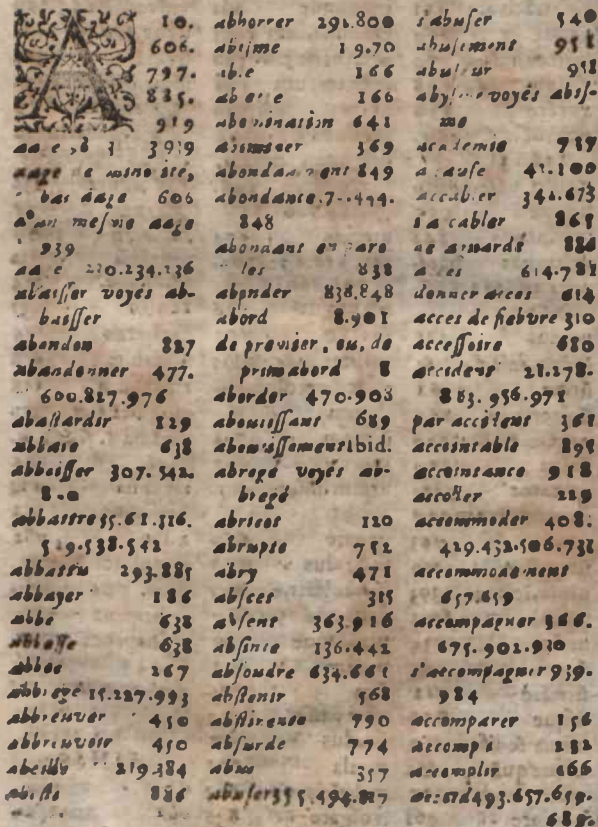 A 10.
606.
797.
835.
919
bas aage 606
939
230.234.236
abaisser voyés ab-
baisser
abandon 827
abandonner 477.
600.827.976
abastardir 829
abbaisser 307.542.
abbattre 55.61.316.
529.538.542
abbattu 293.885
abbayer 186
abbé 638
abbesse 638
267
abbregé 15.227.993
abbreuver 450
abbreuvoir 450
219.384
886
abhorrer 291.800
abisme 19.70
166
166
abomination 641
369
849
abondance
848
abondant en paro
les 838
abonder 838.848
abord 8.901
de premier, ou, de
prim abord 8
aborder 470.908
aboutissant 689
aboutissement ibid.
abregé voyés ab-
bregé
abricot 120
abrupte 752
abry 471
absces 315
absent 363.916
absinte 136.442
absoudre 634.661
abstenir 568
abstinence 790
absurde 774
abus 357
abuser 355.494.817
s'abuser 540
abusement 958
abuseur 958
voyés abis-
me
academie 787
à cause 42.100
accabler 342.673
865
886
acces 614.781
donner acces 614
acces de fiebvre 310
accessoire 680
accident 21.278.
883.956.971
par accident 361
accointable 895
accointance 918
accoller 229
accommoder 408.
429.432.506.738
accommodement
657.659
accompagner 366.
675.902.930
s'accompagner 939.
984
accomparer 156
accompli 282
accomplir 666
accord 493.657.659.
689.